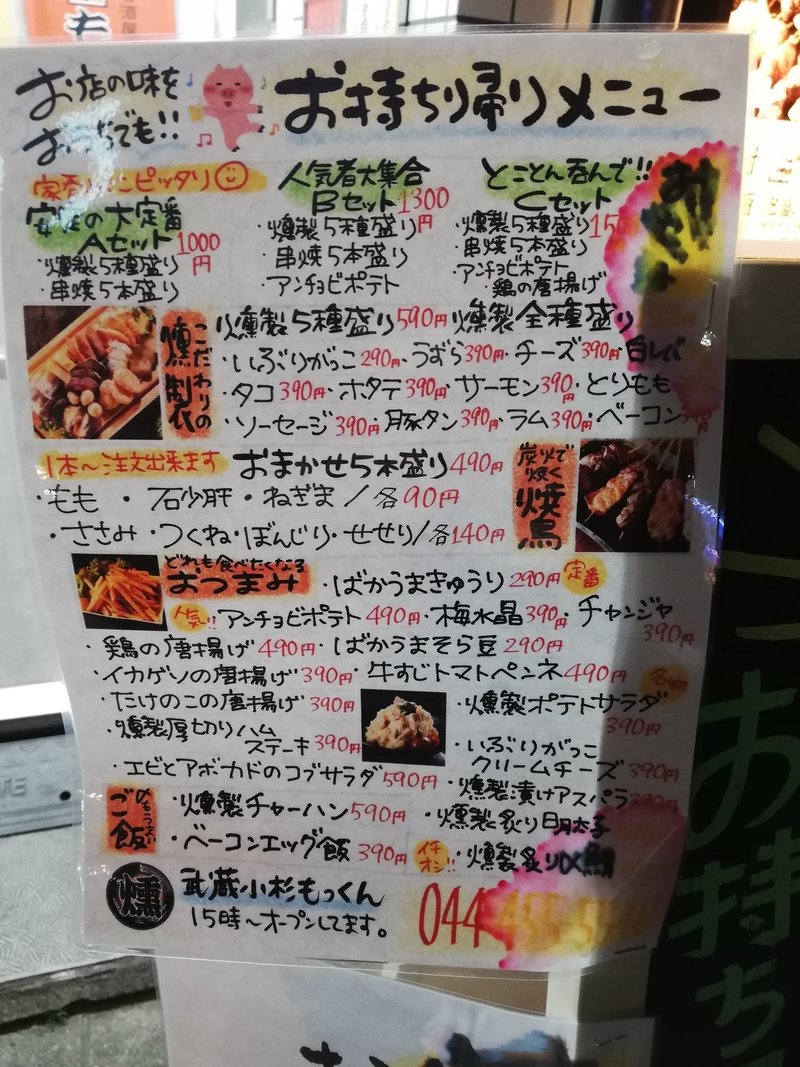 お店の味を
おうちでも!!
お持ち帰りメニュー
家呑みにピッタリ
安定の大定番
Aセット 1000円
・燻製5種盛り
・串焼5本盛り
人気者大集合
Bセット 1300円
・燻製5種盛り
・串焼5本盛り
・アンチョビポテト
とことん呑んで!!
Cセット
・燻製5種盛り
・串焼5本盛り
・アンチョビポテト
・鶏の唐揚げ
こだわりの
燻製
燻製5種盛り 590円 燻製全種盛り
・いぶりがっこ 290円・うずら 390円・チーズ 390円・白レバ
・タコ 390円・ホタテ 390円・サーモン 390円・とりもも
・ソーセージ 390円・豚タン 390円・ラム 390円・ベーコン
1本～注文出来ます おまかせ5本盛り 490円
炭火で
焼く
焼鳥
・もも・石少肝・ねぎま/各90円
・ささみ・つくね・ぼんじり・せせり/各140円
どれも食べたくなる
おつまみ
・ばかうまきゅうり 290円 定番
人気!! アンチョビポテト 490円・梅水晶 390円・チャンジャ 390円
・鶏の唐揚げ 490円・ばかうまそら豆 290円
・イカゲソの唐揚げ 390円・牛すじトマトペンネ 490円
・たけのこの唐揚げ 390円
・燻製ポテトサラダ
390円
・燻製厚切りハム
ステーキ 390円
・いぶりがっこ
クリームチーズ 390円
・エビとアボカドのコブサラダ 590円
・燻製漬けアスパラ
・燻製炙り明太子
イチオシ!! ・燻製炙り〆鯖
〆もうまい
ご飯
・燻製チャーハン 590円
・ベーコンエッグ飯 390円
燻
武蔵小杉もっくん
15時～オープンしてます。
044
お持ち